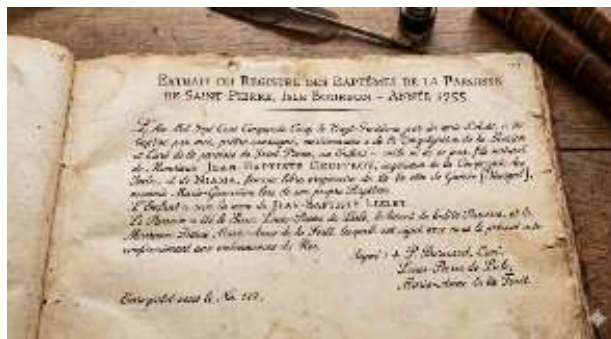 EXTRAIT DU REGISTRE DES BAPTÊMES DE LA PAROISSE
DE SAINT-PIERRE, ISLE BOURBON – ANNÉE 1755
L'An Mil Sept Cent Cinquante Cinq, le Vingt- jour du mois d'Août, a été
baptisé par moi, prêtre soussigné, missionnaire de la Congrégation de la Mission
et Curé de la paroisse de Saint Pierre, un Enfant né, fils naturel
de Monsieur JEAN BAPTISTE GEOFFROY, ingénieur de la Compagnie des
Indes, et de NIAMA, femme libre originaire de la côte de Guinée (Sénégal),
nommée Marie-Geneviève lors de son propre Baptême.
L'Enfant a reçu le nom de JEAN-BAPTISTE LISLET.
Le Parrain a été le Sieur Louis-Pierre de Lisle, et la
Marraine Marie-Anne de la Forêt, lesquels ont signé avec nous le présent acte
conformément aux ordonnances du Roy.
Signé : † P. Curé.
Louis-Pierre de Lisle,
Marie-Anne de la Forêt.
Enregistré sous le No.